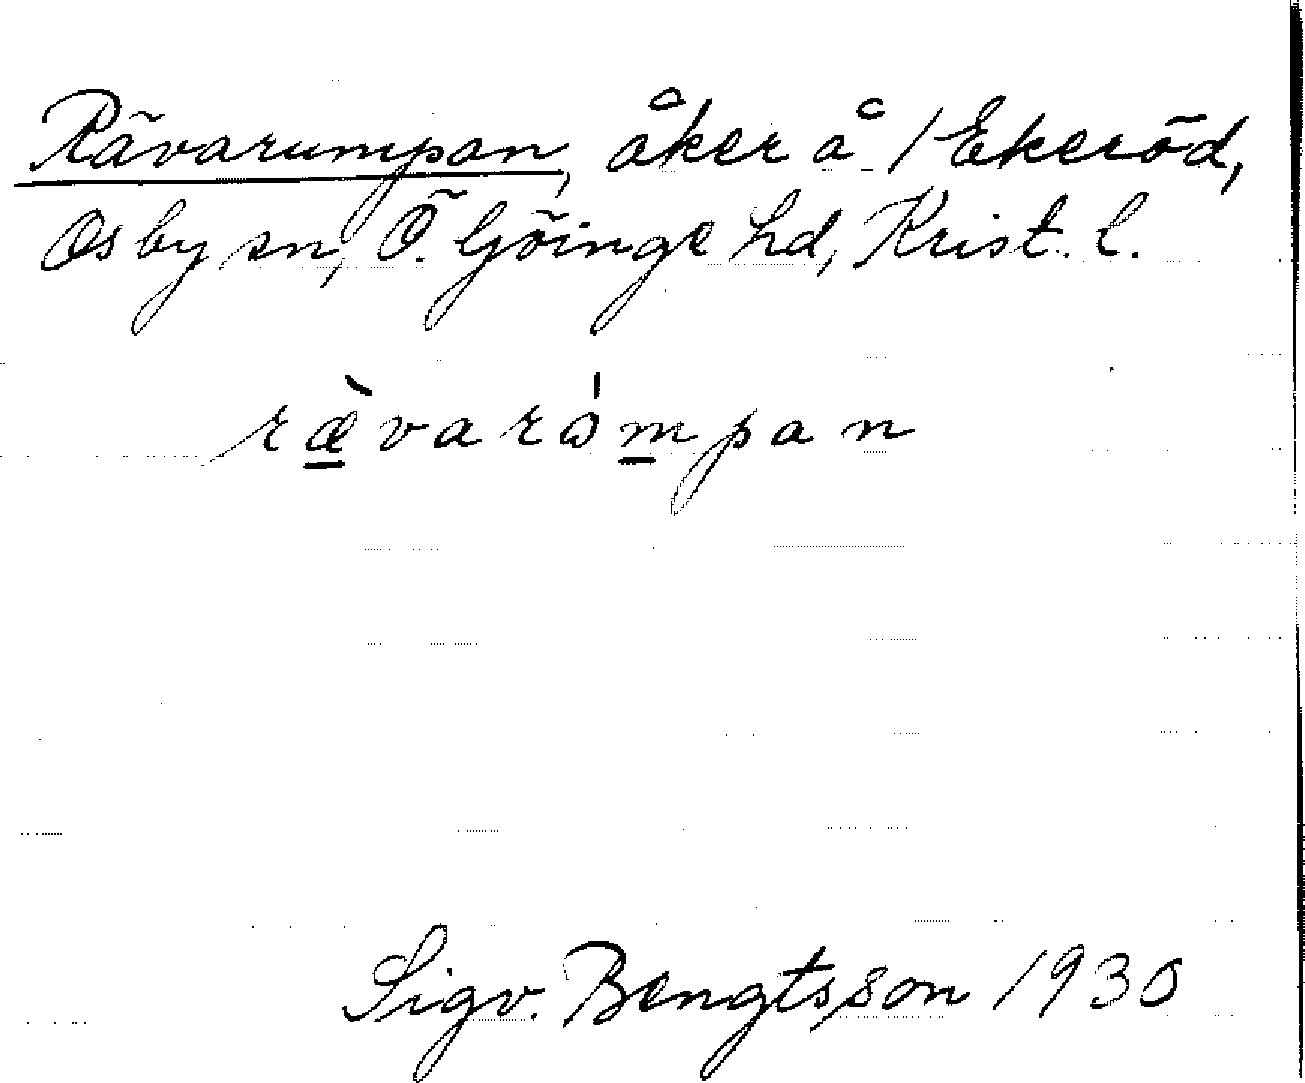 Rävarumpan, åker å 1 Ekeröd,
Osby sn, Ö. Göinge hd, Krist. l.
ræ̀varómpan
Sigv. Bengtsson 1930